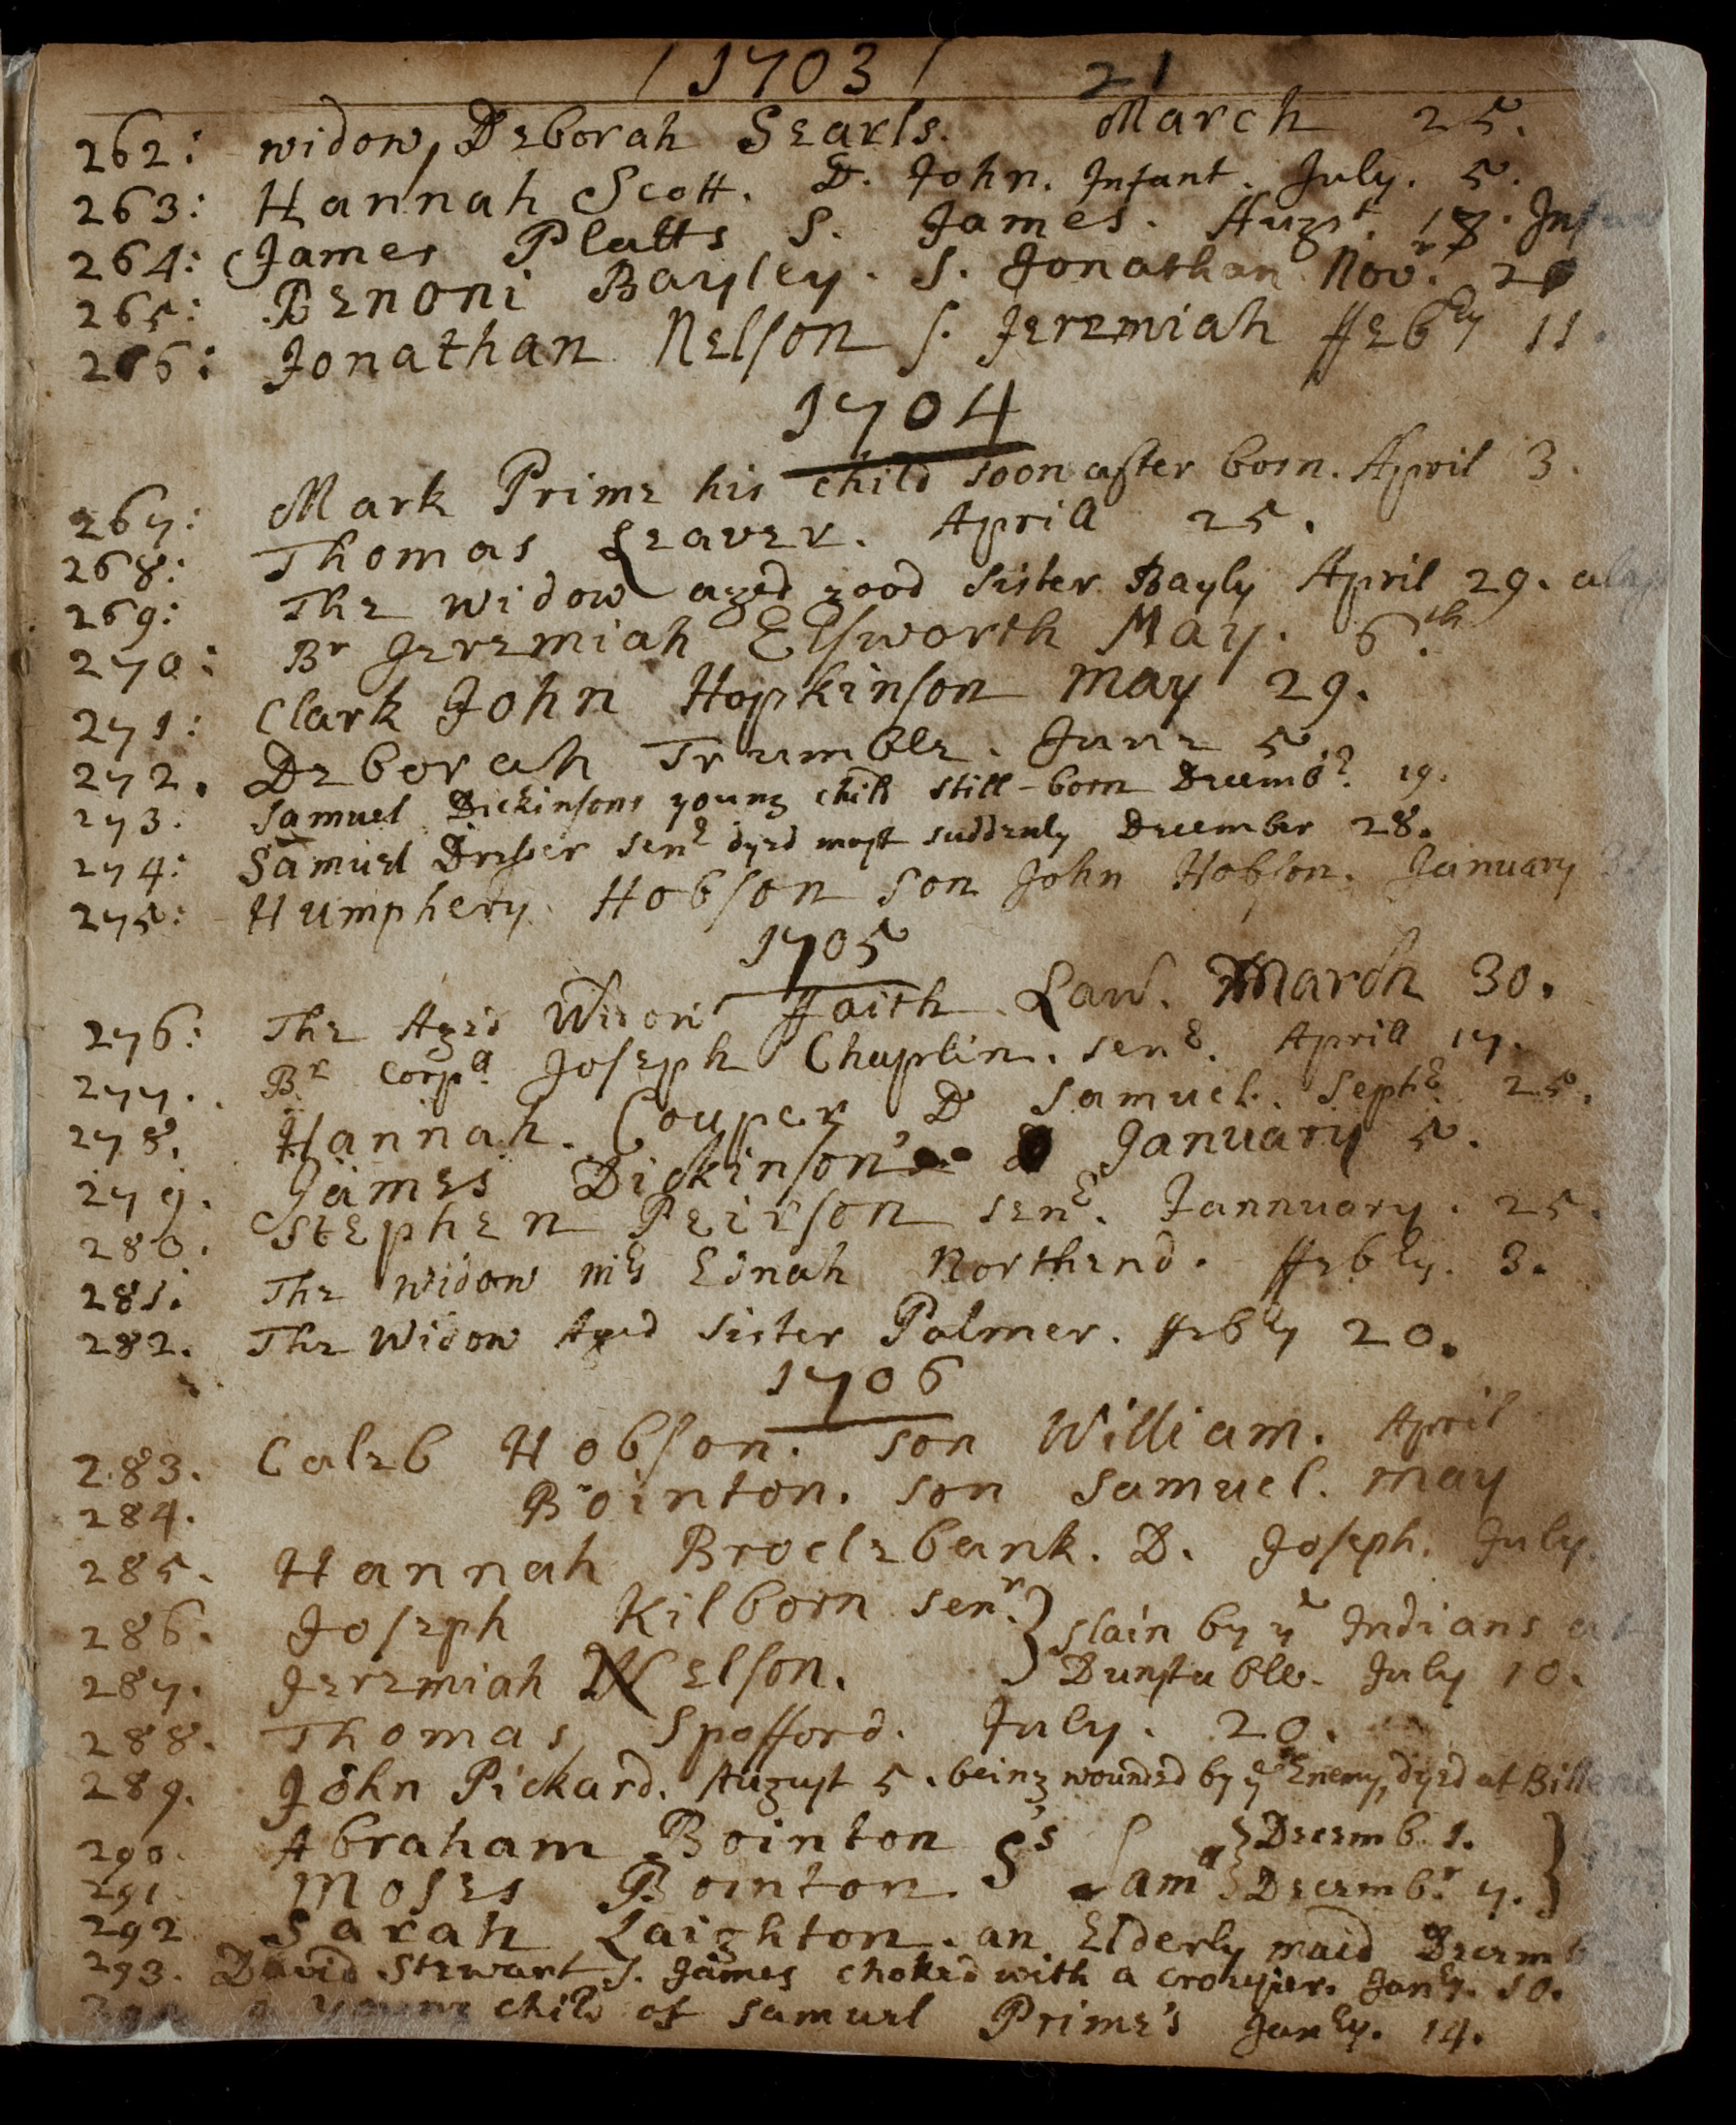 / 1703 / 21
262: widow, Deborah Searls. March 25.
263: Hannah Scott. D. John. Infant. July. 5.
264: James Platts S. James. Augst. 18.
265: Benoni Bayley. S. Jonathan Novr.
266: Jonathan Nelson S. Jeremiah ffebry 11.
1704
267: Mark Prime his child soon after born. April 3.
268: Thomas Leaver. Aprill 25.
269: The widow aged good sister Bayly April 29.
270: Br Jeremiah Elsworth May. 6th.
271: Clark John Hopkinson may 29.
272. Deborah Trumble. June 5.
273. Samuel Dickinsons young child still-born Decembr. 19.
274: Samuel Dresser senr dyed most suddenly December 28.
275: Humphery Hobson son John Hobson. January
1705
276: The Aged Widow ffaith Law. March 30.
277. Br Corpll. Joseph Chaplin. senr. Aprill 17.
278. Hannah. Couper, D Samuel. Septr. 25.
279. James Dickinson January 5.
280. Stephen Peirson senr. Jannuary. 25.
281. The widow mrs Ednah Northend. ffebry. 3.
282. The Widow Aged sister Palmer. ffebry 20.
1706
283. Caleb Hobson. son William. April
284. Bointon. son Samuel. may
285. Hannah Broclebank. D. Joseph. July.
286. Joseph Kilborn senr. } slain by ye Indians at
287. Jeremiah Nelson. } Dunstable. July 10.
288. Thomas Spofford. July. 20.
289. John Pickard. August 5. being wounded by ye Enemy, dyed at
290. Abraham Bointon } Ss Samll { Decemb. 1. }
291. Moses Bointon. } { Decembr. 7. }
292 Sarah Laighton. an Elderly maid
293. David Stewart, S. James choked with a Janry. 10.
a young child of Samuel Prime's Janry. 14.